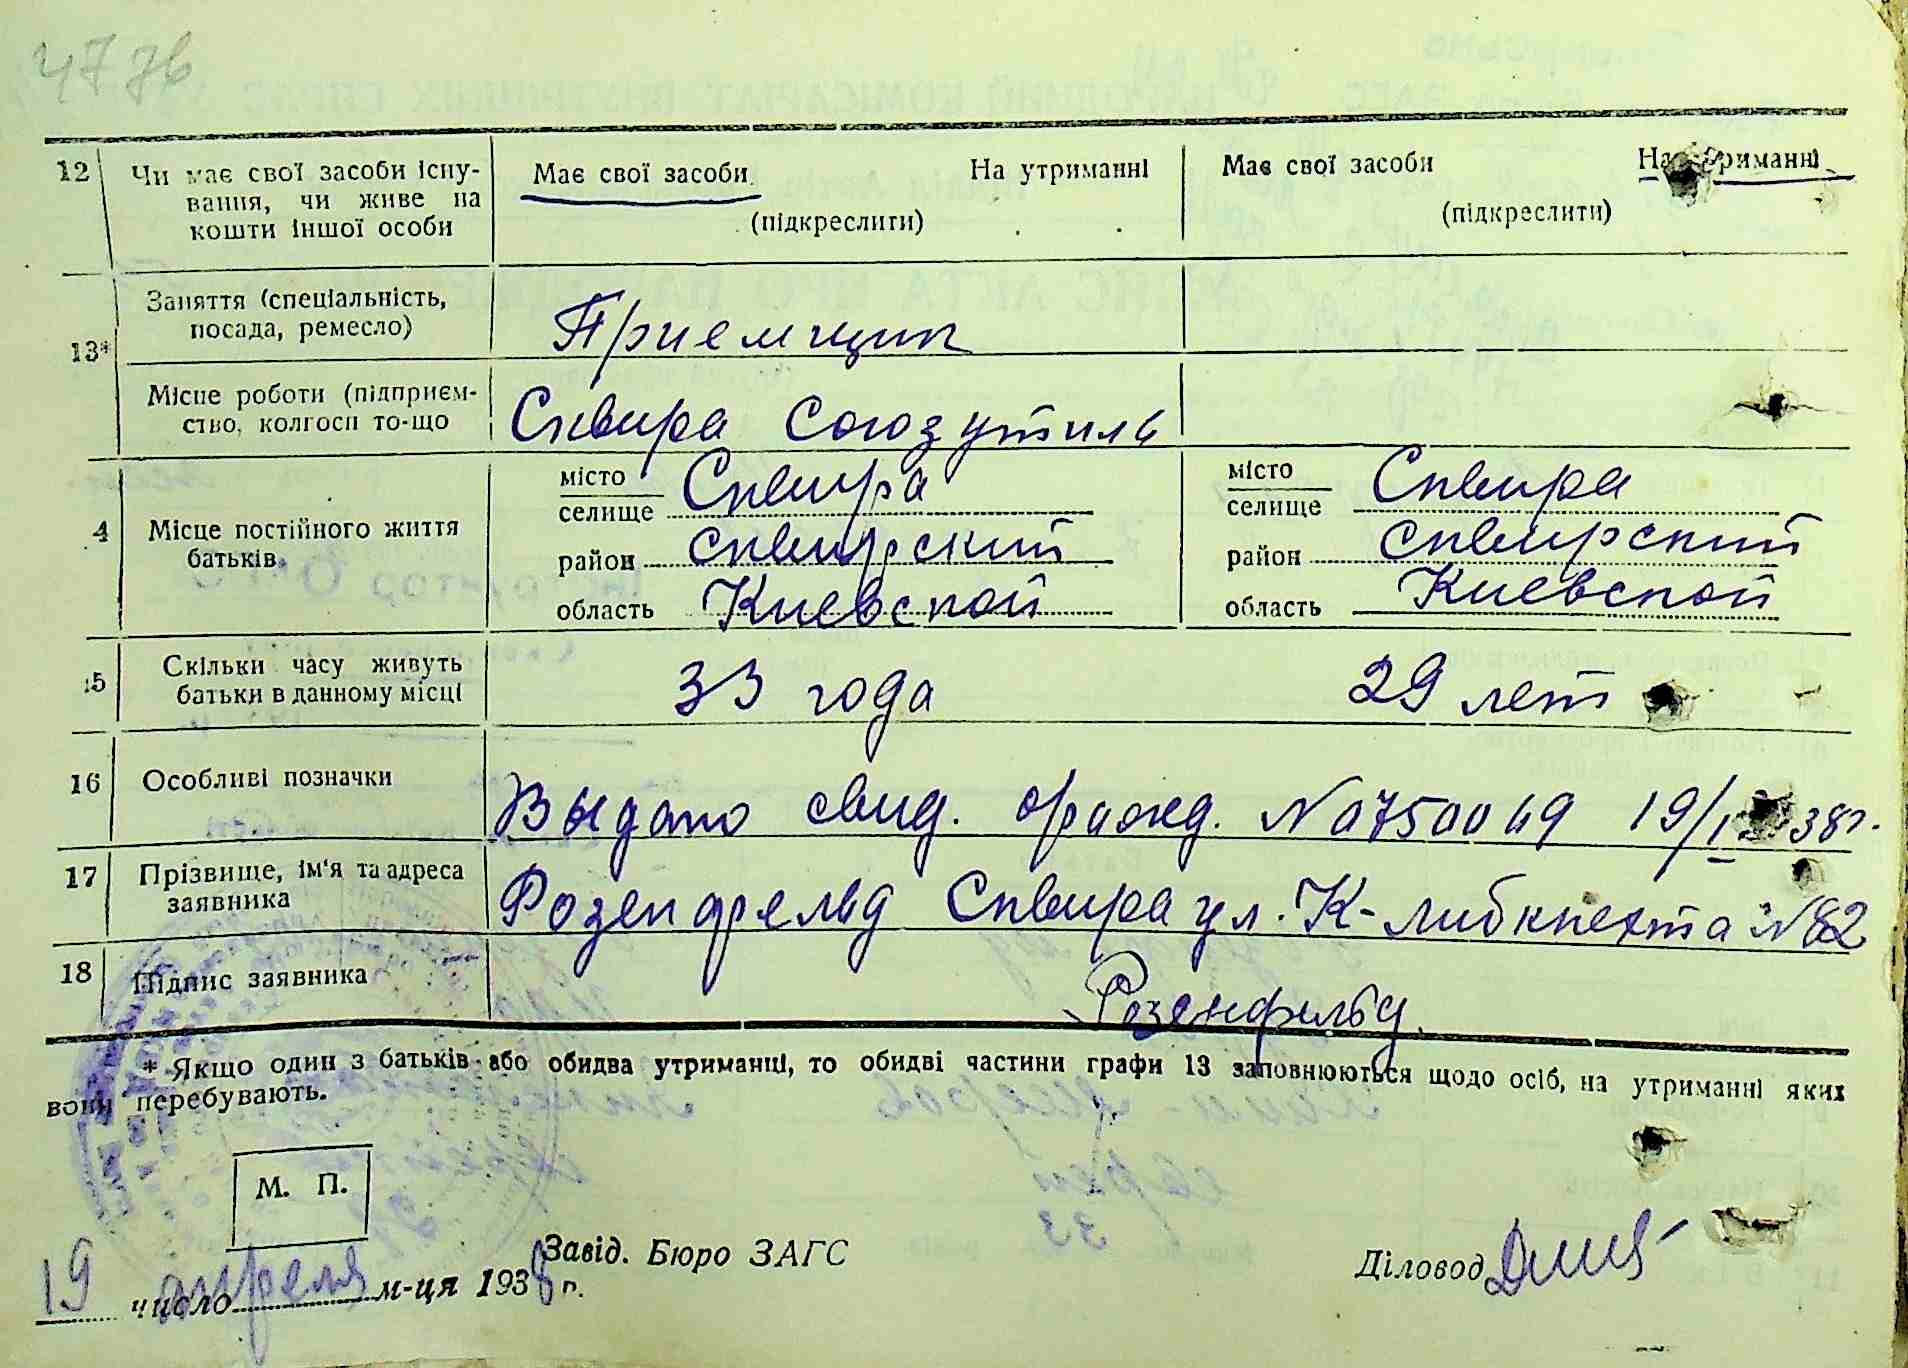 4776
12
Чи має свої засоби існу-
вання, чи живе на
кошти іншої особи
Має свої засоби
На утриманні
(підкреслити)
Має свої засоби
На
риманні
(підкреслити)
13*
Заняття (спеціальність,
посада, ремесло)
Приемщик
Місце роботи (підприєм-
ство, колгосп то-що
Сквира Союзутиль
4
Місце постійного життя
батьків
місто
селище
Сквира
район сквирский
область Киевской
місто
селище
Сквира
район сквирский
область Киевской
15
Скільки часу живуть
батьки в данному місці
33 года
29 лет
16
Особливі позначки
Выдано свид. о рожд. № 0750049 19/ 38г.
17
Прізвище, ім'я та адреса
заявника
Розенфельд Сквира ул. К-либкнехта № 82
18
Підпис заявника
Розенфельд
* Якщо один з батьків або обидва утриманці, то обидві частини графи 13 заповнюються щодо осіб, на утриманні яких
вони перебувають.
М. П.
Завід. Бюро ЗАГС
Діловод
19 число апреля м-ця 1938 р.